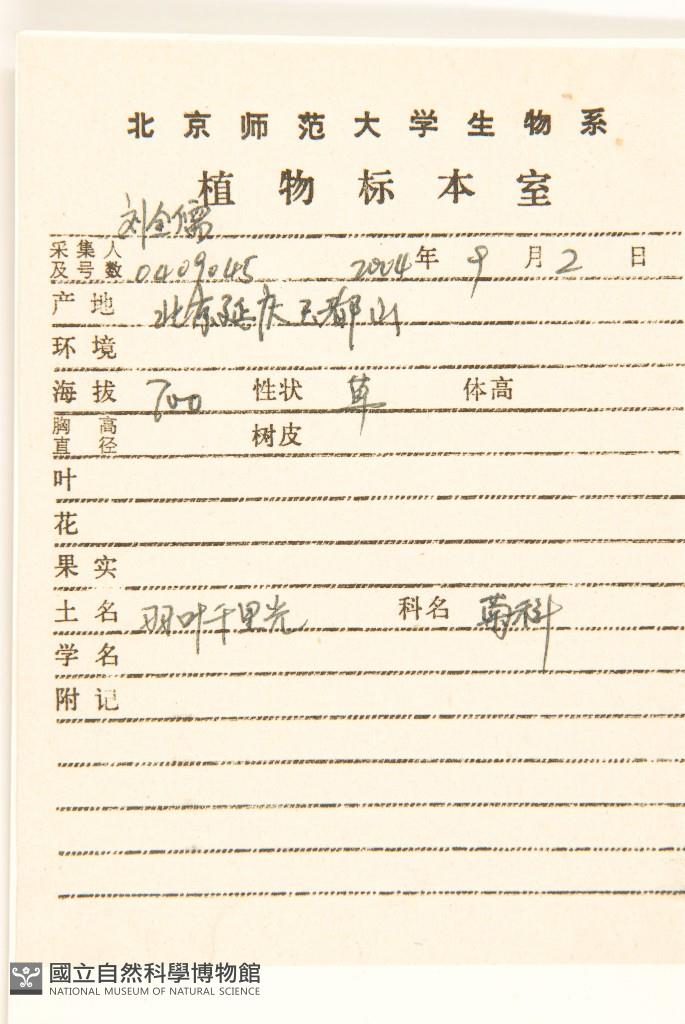 北京师范大学生物系
植物标本室
刘全儒
采集人及号数 0409045 2004年9月2日
产地 北京延庆玉都山
环境
海拔 700 性状 草 体高
胸高直径 树皮
叶
花
果实
土名 羽叶千里光 科名 菊科
学名
附记
國立自然科學博物館
NATIONAL MUSEUM OF NATURAL SCIENCE